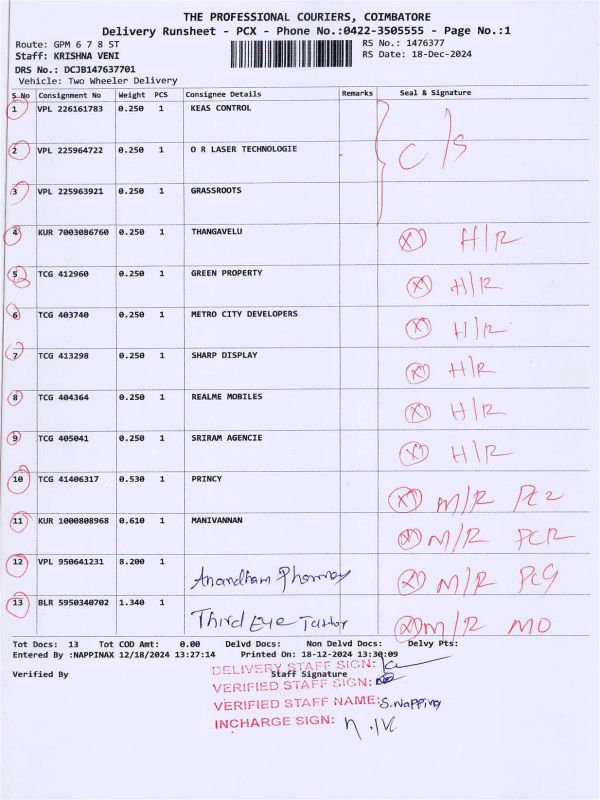 THE PROFESSIONAL COURIERS, COIMBATORE
Delivery Runsheet - PCX - Phone No.:0422-3505555 - Page No.:1
Route: GPM 6 7 8 ST RS No.: 1476377
Staff: KRISHNA VENI RS Date: 18-Dec-2024
DRS No.: DCJB147637701
Vehicle: Two Wheeler Delivery
S No Consignment No Weight PCS Consignee Details Remarks Seal & Signature
1 VPL 226161783 0.250 1 KEAS CONTROL
2 VPL 225964722 0.250 1 O R LASER TECHNOLOGIE C/S
3 VPL 225963921 0.250 1 GRASSROOTS
4 KUR 7003086760 0.250 1 THANGAVELU X1 H/R
5 TCG 412960 0.250 1 GREEN PROPERTY X1 H/R
6 TCG 403740 0.250 1 METRO CITY DEVELOPERS X1 H/R
7 TCG 413298 0.250 1 SHARP DISPLAY X1 H/R
8 TCG 404364 0.250 1 REALME MOBILES X1 H/R
9 TCG 405041 0.250 1 SRIRAM AGENCIE X1 H/R
10 TCG 41406317 0.530 1 PRINCY X1 M/R
11 KUR 1000808968 0.610 1 MANIVANNAN X1 M/R PCR
12 VPL 950641231 8.200 1 Anandham Pharmay X1 M/R
13 BLR 5950340702 1.340 1 Third Eye X1 M/R MO
Tot Docs: 13 Tot COD Amt: 0.00 Delvd Docs: Non Delvd Docs: Delvy Pts:
Entered By :NAPPINAX 12/18/2024 13:27:14 Printed On: 18-12-2024 13:30:09
DELIVERY STAFF SIGN:
Verified By Staff Signature
VERIFIED STAFF SIGN:
VERIFIED STAFF NAME: S.Nappinay
INCHARGE SIGN: